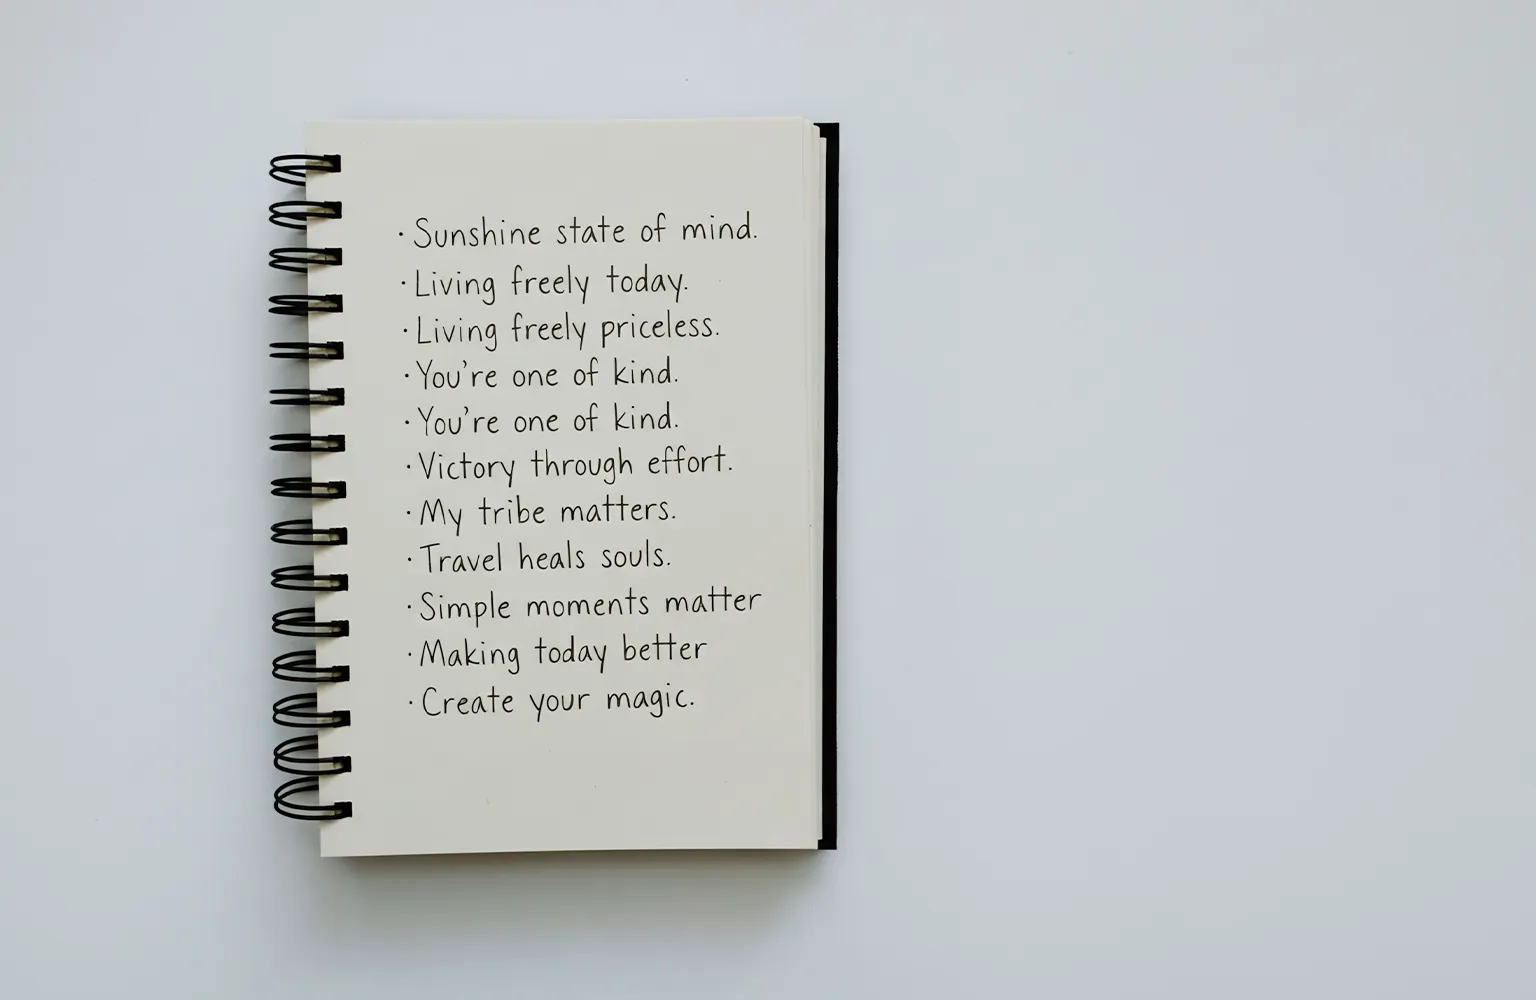 · Sunshine state of mind.
· Living freely today.
· Living freely priceless.
· You're one of kind.
· You're one of kind.
· Victory through effort.
· My tribe matters.
· Travel heals souls.
· Simple moments matter
· Making today better
· Create your magic.